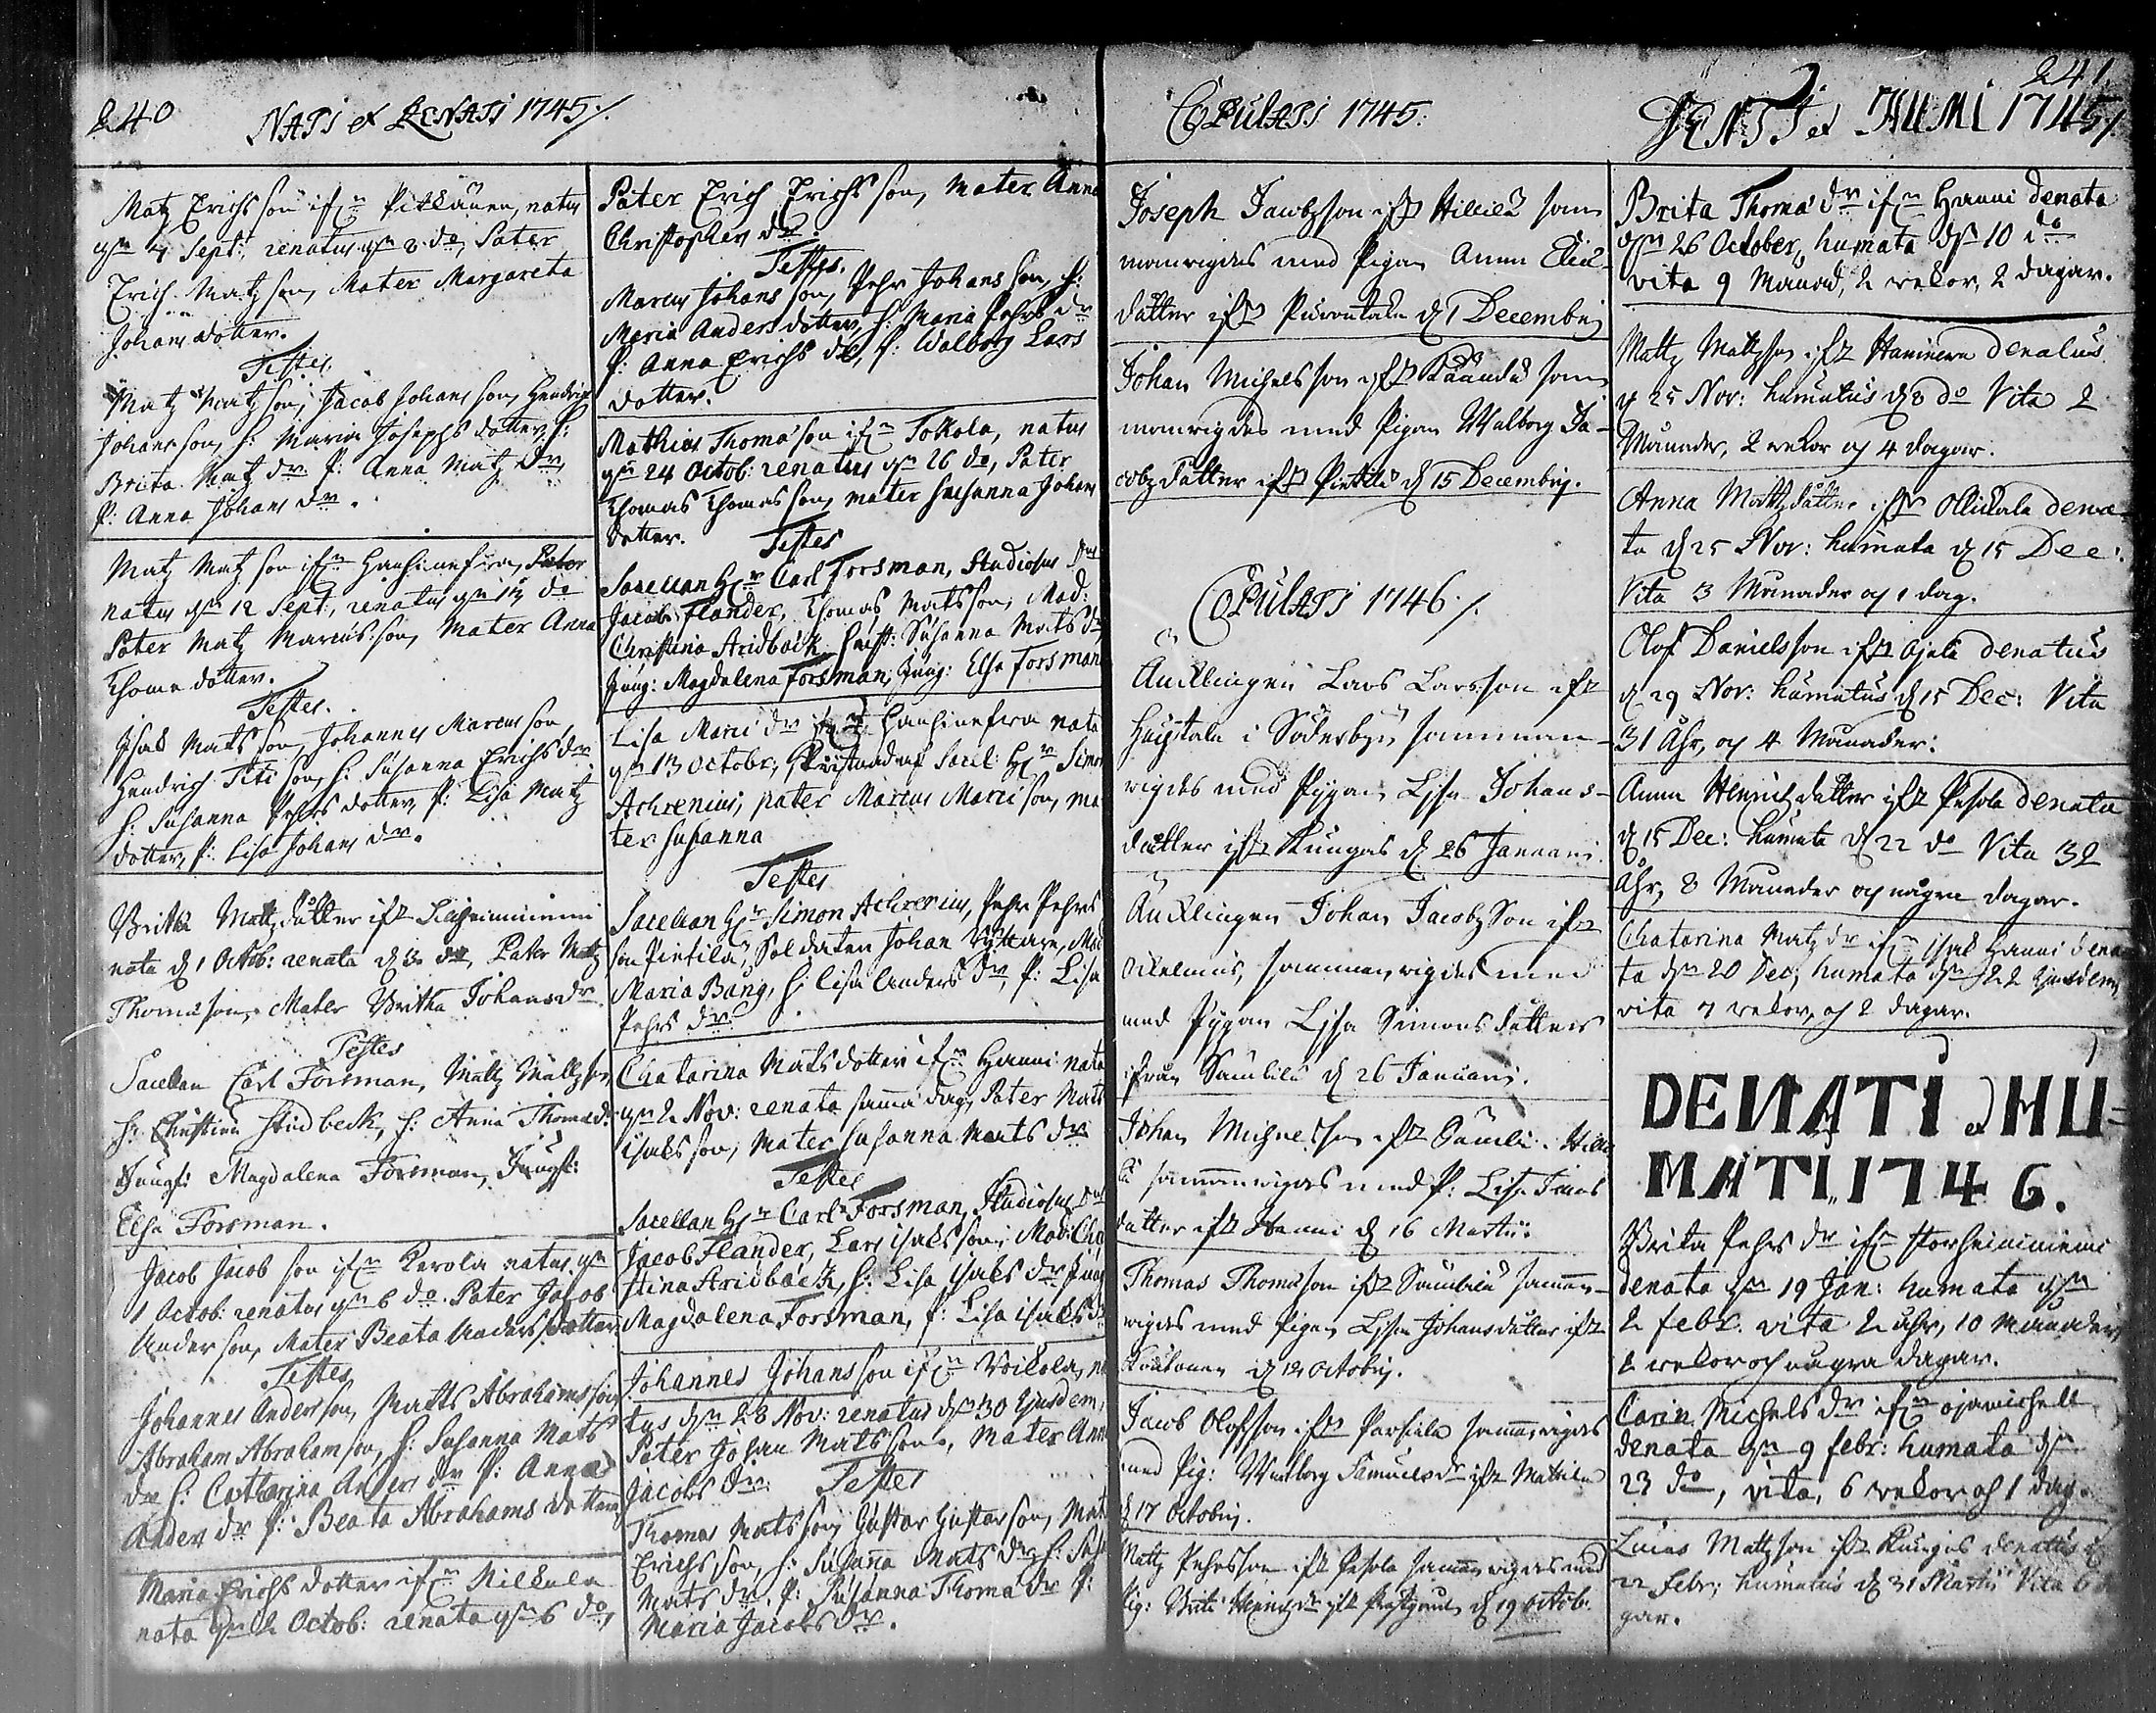 240 NATI et RENATI 1745./.
Matz Erichs son ifrn Pitkänen, natus
dn 4 Sept: renatus dn 8 do, Pater
Erich Matz son, Mater Margareta
Johans dotter.
Testes.
Matz Matz son, Jacob Johans son, Hendrich
Johans son, h: Maria Josephs dotter, h:
Brita Matz dr P: Anna Matz dr,
P: Anna Johans dr.
Matz Matz son ifrn
natus dn 12 Sept:, renatus dn do
Pater Matz Marcus son, Mater Anna
Thomæ dotter.
Testes.
Isak Mats son, Johannes Marcus son,
Hendrich Titi son, h: Susanna Erichs dr
h: Susanna Pehrs dotter, P: Lisa Matz
dotter, P: Lisa Johans dr.
Britha Mattz dåtter ifr
nata d 1 Octob: renata d 3 do, Pater Matz
Thomæ son, Mater Britha Johans dr.
Testes
Sacellan Carl Forsman, Mattz Mattz son,
h: Christina Stridbeck, h: Anna Thomæ dr
Jungf: Magdalena Forsman, Jungf:
Elsa Forsman.
Jacob Jacob son ifrn Karola natus dn
1 Octob: renatus dn 6 do. Pater Jacob
Anders son, Mater Beata Anders dotter.
Testes
Johannes Anders son, Matts Abrahams son
Abraham Abraham son, h: Susanna Mats
dr h: Catharina Anders dr P: Anna
Anders dr P: Beata Abrahams dotter
Maria Erichs dotter ifrn Nikkula
nata dn 2 Octob: renata dn 6 do,
Pater Erich Erichs son, Mater Anna
Christophers dr.
Testes.
Marcus Johans son, Pehr Johans son, h:
Maria Anders dotter, h: Maria Pehrs dr
P: Anna Erichs dr, P: Walborg Lars
dotter.
Mathias Thomæ son ifrn Tokola, natus
dn 24 Octob: renatus dn 26 do, Pater
Thomas Thomas son, mater Susanna Johans
dotter. Testes
Sacellan Hr Carl Forsman, Studiosus Dns
Jacob Flander, Thomas Mats son, Mad:
Christina Stridbäck, hust: Susanna Mats dr
Jung: Magdalena Forsman, Jung: Elsa Forsman
Lisa Marci dr ifrn nata
dn 13 Octobr; Christnad af Sacel: Hr Simon
Achrenius, pater Marcus Marci son, ma
ter Susanna
Testes
Sacellan Hr Simon Achrenius, Pehr Pehrs
son Pietilä, Soldaten Johan, Mad
Maria Bang, h: Lisa Anders dr, P: Lisa
Pehrs dr.
Chatarina Mats dotter ifrn Hanni nata
dn 2 Nov: renata samma dag, Pater Mats
Isaks son, Mater Susanna Mats dr
Testes
Sacellan Hr Carl Forsman, Studiosus Dns
Jacob Flander, Lars Isaks son, Mad: Chri
stina Stridbäck, h: Lisa Isaks dr Jung
Magdalena Forsman, P: Lisa Isaks dr
Johannes Johans son ifrn Voikola, na
tus dn 28 Nov: renatus dn 30 Ejusdem,
Pater Johan Mats son, Mater Anna
Jacobs dr. Testes
Thomas Mats son, Gustav Gustav son, Mats
Erichs son, h: Susanna Mats dr, h: Susa
Mats dr, P: Susanna Thomæ dr P:
Maria Jacobs dr.
COPULATI 1745:
Joseph Jacobzson ifr Hillilä sam
manvigdes med Pigan Anna Elie
dåtter ifr d 1 Decembris
Johan Michelsson ifr sam
manvigdes med Pigan Walborg Ja-
cobz dåtter ifr Pietilä d 15 Decembris.
COPULATI 1746./.
Änklingen Lars Larsson ifr
i Söderby, samman-
vigdes med Pygan Lisa Johans-
dåtter ifr Kungas d 26 Januarii.
Änklingen Johan Jacobz Son ifr
sammanvigdes med
med Pygan Lisa Simons dåtter
ifrån d 26 Januarii.
Johan Michelsson ifr Hilli
lä sammanvigdes med P: Lisa Isaks
dåtter ifr Hanni d 16 Martii.
Thomas Thomæson ifr samman-
vigdes med Pigan Lisa Johansdåtter ifr
d 12 Octobris.
Jacob Olofsson ifr Parhiala sammanvigdes
med Pig: Walborg Samuels dr ifr Matila
d 17 Octobris.
Mattz Pehrsson ifr Pesola samanvigdes med
Pig: Brita Henricz dr ifr d 19 Octobr.
241.
DENATI et HUMI 1745./
Brita Thomæ dr ifrn Hanni denata
dn 26 October, humata dn 10 do
vita 9 Månad, 2 vekor, 2 dagar.
Mattz Mattzson ifr denatus
d 25 Nov: humatus d 8 do Vita 2
Månader, 2 vekor och 4 dagar.
Anna Mattzdåtter ifr Ollikala dena-
ta d 25 Nov: humata d 15 Dec:
Vita 3 Månader och 1 dag.
Olof Danielsson ifr Ojala denatus
d 29 Nov: humatus d 15 Dec: Vita
31 Åhr, och 4 Månader:
Anna Henricz dåtter ifr Pesola denata
d 15 Dec: humata d 22 do Vita 32
Åhr, 8 Månader och någre dagar.
Chatarina Matz dr ifrn Isak Hanni dena
ta dn 20 Dec; humata dn 22 Ejusdem,
vita 7 vekor, och 2 dagar.
DENATI et HU=
MATI. 1746.
Brita Pehrs dr ifrn
denata dn 19 Jan: humata dn
2 febr. vita 2 åhr, 10 månader,
2 vekor och några dagar.
Carin Michels dr ifrn
denata dn 9 febr: humata dn
23 do, vita, 6 vekor och 1 dag.
Lucas Mattzson ifr Kungas denatus d
22 Febr; humatus d 31 Martii Vita 6
gar.